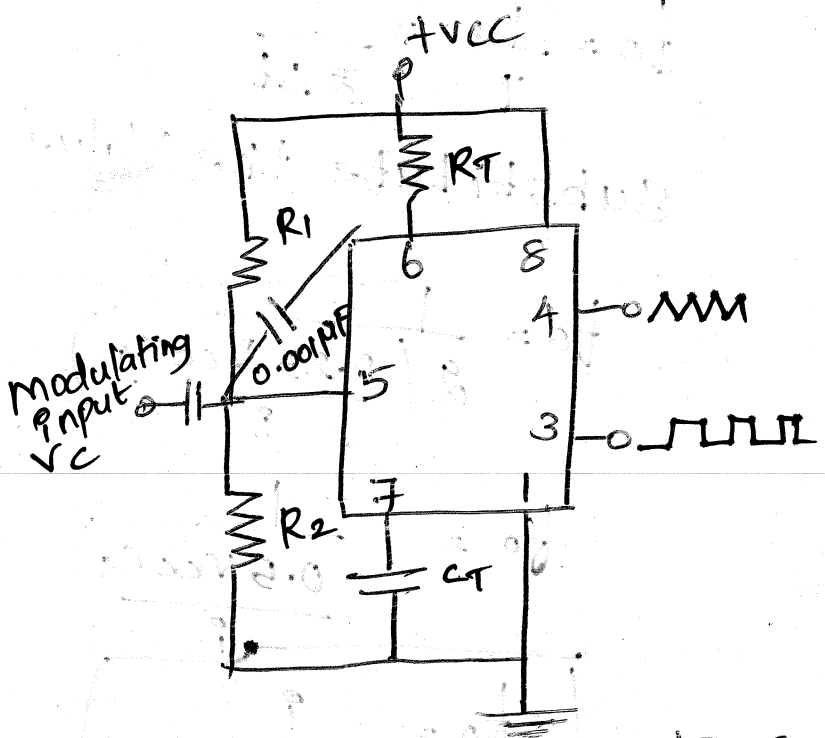 +VCC
RT
R1
6
8
4
0.001µF
Modulating
input
VC
5
3
7
1
R2
CT